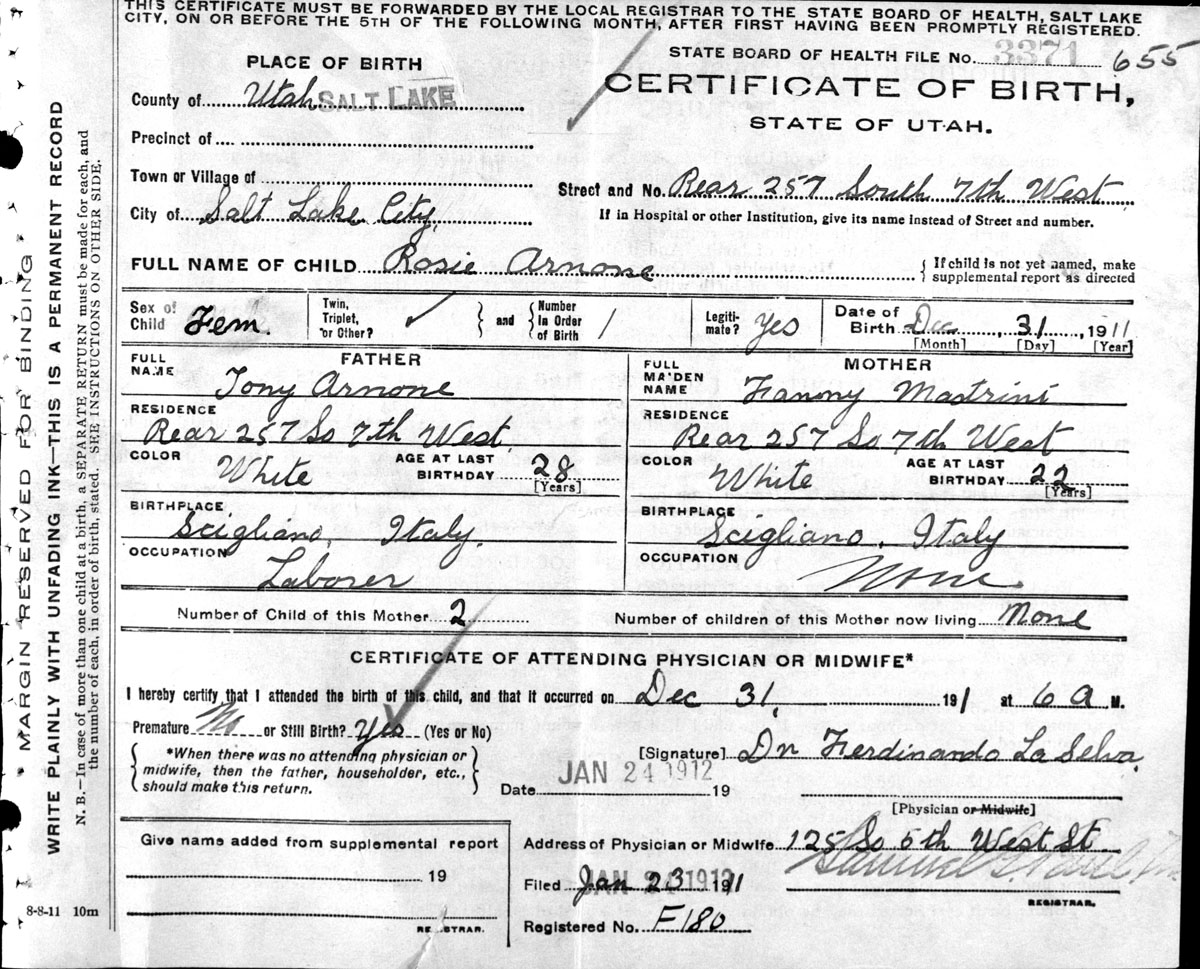 THIS CERTIFICATE MUST BE FORWARDED BY THE LOCAL REGISTRAR TO THE STATE BOARD OF HEALTH, SALT LAKE
CITY, ON OR BEFORE THE 5TH OF THE FOLLOWING MONTH, AFTER FIRST HAVING BEEN PROMPTLY REGISTERED.
STATE BOARD OF HEALTH FILE No. 3371 655
PLACE OF BIRTH
CERTIFICATE OF BIRTH,
STATE OF UTAH.
County of Utah SALT LAKE
Precinct of
Town or Village of
Street and No. Rear 257 South 7th West
City of Salt Lake City
If in Hospital or other Institution, give its name instead of Street and number.
FULL NAME OF CHILD Rosie Arnone { If child is not yet named, make supplemental report as directed
Sex of Child Fem Twin, Triplet, or Other? } and { Number in Order of Birth / Legiti- mate? Yes Date of Birth Dec, 31, 1911
[Month] [Day] [Year]
FATHER
MOTHER
FULL NAME Tony Arnone
FULL MAIDEN NAME Fanny Mastrini
RESIDENCE
Rear 257 So 7th West
RESIDENCE
Rear 257 So 7th West
COLOR White AGE AT LAST BIRTHDAY 28 [Years]
COLOR White AGE AT LAST BIRTHDAY 22 [Years]
BIRTHPLACE
Scigliano, Italy.
BIRTHPLACE
Scigliano, Italy
OCCUPATION
Laborer
OCCUPATION
None
Number of Child of this Mother 2
Number of children of this Mother now living None
CERTIFICATE OF ATTENDING PHYSICIAN OR MIDWIFE*
I hereby certify that I attended the birth of this child, and that it occurred on Dec 31, 191 at 6 a M.
Premature No or Still Birth? Yes (Yes or No)
*When there was no attending physician or
midwife, then the father, householder, etc.,
should make this return.
[Signature] Dr Ferdinando La Selva
Date JAN 24 1912 19
[Physician or Midwife]
Give name added from supplemental report
19
REGISTRAR.
Address of Physician or Midwife 125 So 5th West St
Filed Jan 23 1911
REGISTRAR.
Registered No. F180
MARGIN RESERVED FOR BINDING
WRITE PLAINLY WITH UNFADING INK—THIS IS A PERMANENT RECORD
N. B.—In case of more than one child at a birth, a SEPARATE RETURN must be made for each, and
the number of each, in order of birth, stated. SEE INSTRUCTIONS ON OTHER SIDE.
8-8-11 10m